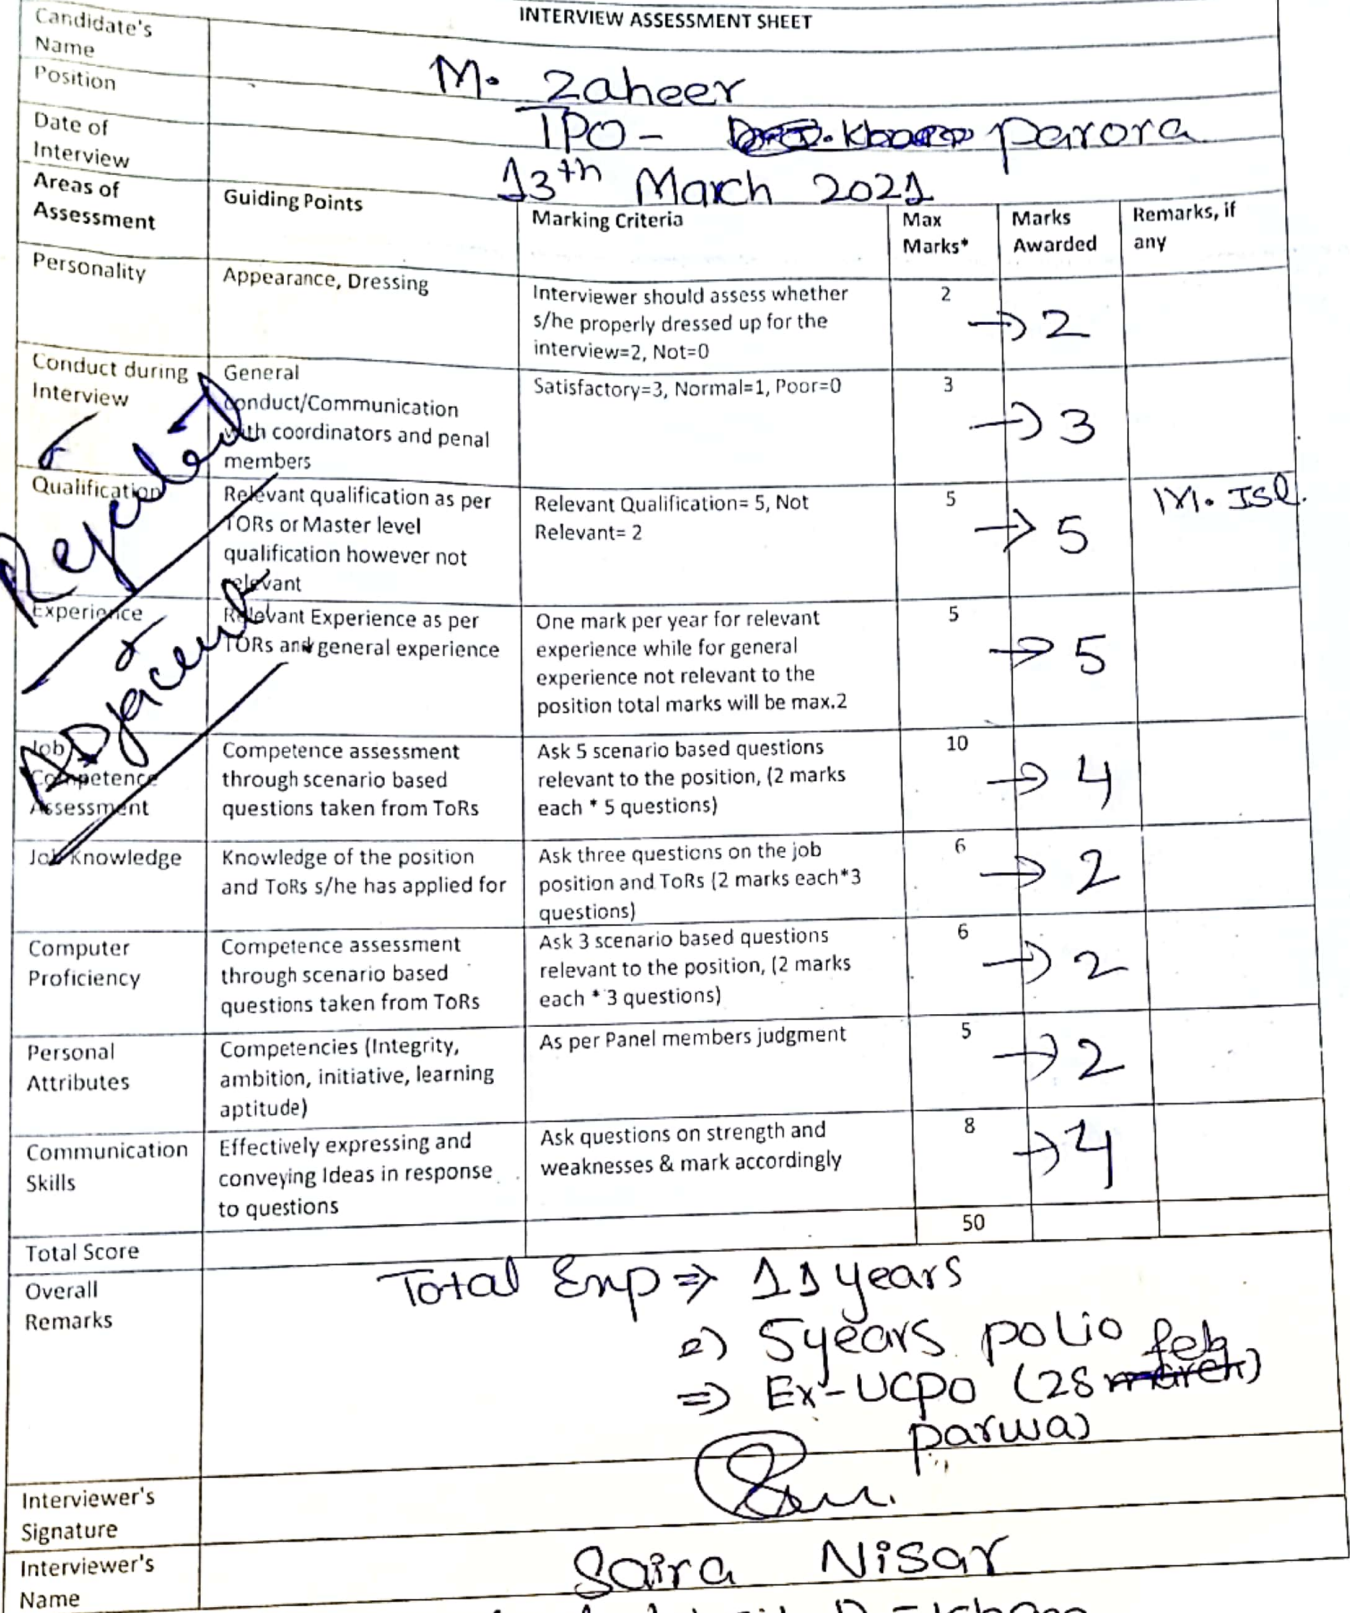 INTERVIEW ASSESSMENT SHEET
Candidate's
Name
M. Zaheer
Position
TPO - Parora
Date of
Interview
13th March 2021
Areas of
Assessment
Guiding Points
Marking Criteria
Max
Marks*
Marks
Awarded
Remarks, if
any
Personality
Appearance, Dressing
Interviewer should assess whether
s/he properly dressed up for the
interview=2, Not=0
2
→ 2
Conduct during
Interview
General
conduct/Communication
with coordinators and penal
members
Satisfactory=3, Normal=1, Poor=0
3
→ 3
Rejected
Qualification
Relevant qualification as per
TORs or Master level
qualification however not
relevant
Relevant Qualification= 5, Not
Relevant= 2
5
→ 5
M. Isl.
Experience
Relevant Experience as per
TORs and general experience
One mark per year for relevant
experience while for general
experience not relevant to the
position total marks will be max.2
5
→ 5
ADjacent
Job
Competence
Assessment
Competence assessment
through scenario based
questions taken from ToRs
Ask 5 scenario based questions
relevant to the position, (2 marks
each * 5 questions)
10
→ 4
Job Knowledge
Knowledge of the position
and ToRs s/he has applied for
Ask three questions on the job
position and ToRs (2 marks each*3
questions)
6
→ 2
Computer
Proficiency
Competence assessment
through scenario based
questions taken from ToRs
Ask 3 scenario based questions
relevant to the position, (2 marks
each * 3 questions)
6
→ 2
Personal
Attributes
Competencies (Integrity,
ambition, initiative, learning
aptitude)
As per Panel members judgment
5
→ 2
Communication
Skills
Effectively expressing and
conveying Ideas in response
to questions
Ask questions on strength and
weaknesses & mark accordingly
8
→ 4
Total Score
50
Overall
Remarks
Total Exp ⇒ 11 years
⇒ 5 years polio
⇒ Ex-UCPO (28 march feb)
Parwa
Interviewer's
Signature
Interviewer's
Name
Saira Nisar